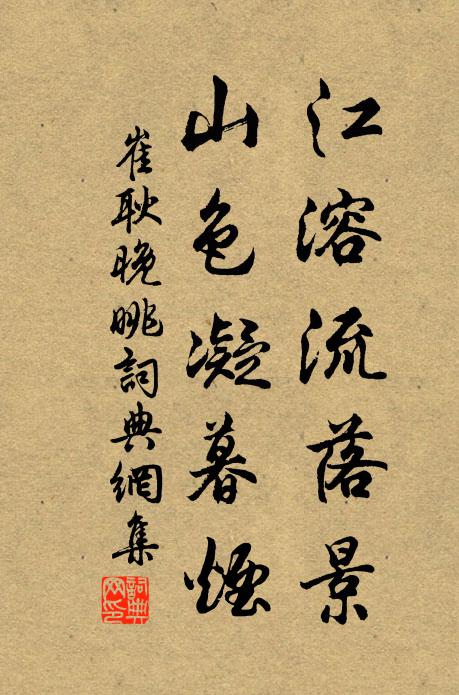 江溶流落景
山色凝暮煙
崔耿晚眺詞典網集
詞典网印